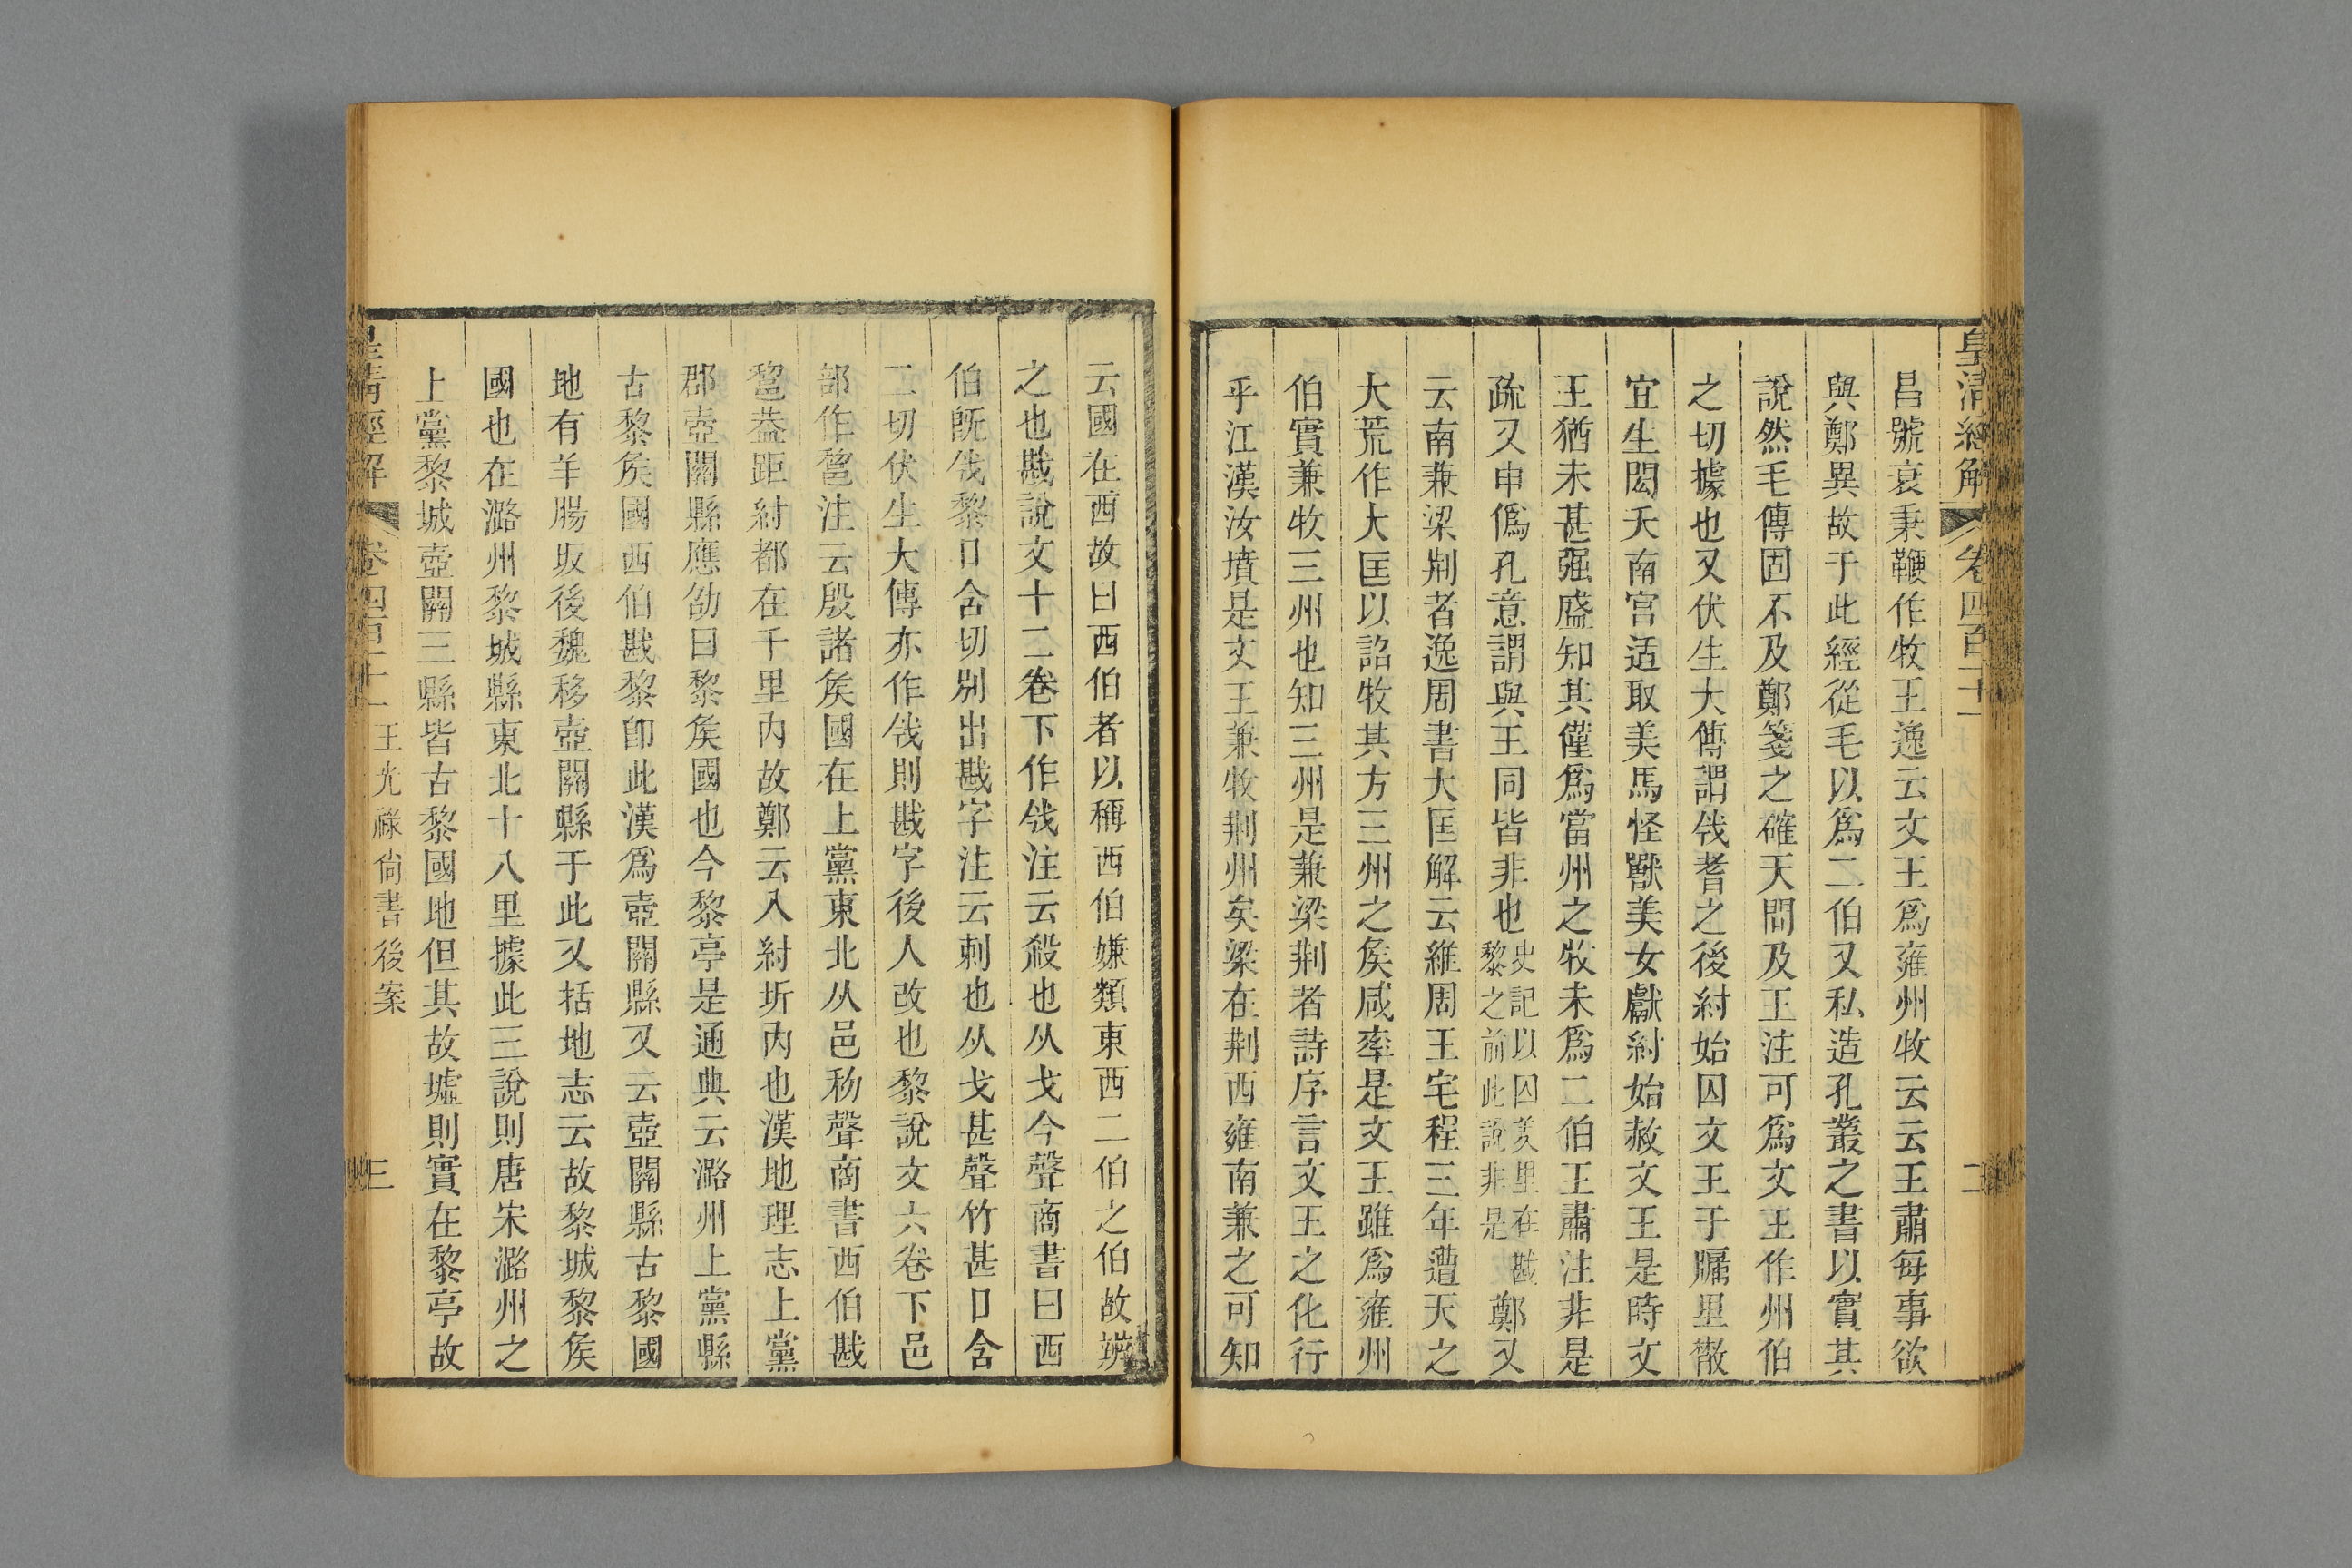 皇清經解
卷四百十一
二
昌號衰秉鞭作牧王逸云文王爲雍州牧云云王肅每事欲
與鄭異故于此經從毛以爲二伯又私造孔叢之書以實其
說然毛傳固不及鄭箋之確天問及王注可爲文王作州伯
之切據也又伏生大傳謂伐耆之後紂始囚文王于牖里散
宜生閎夭南宮适取美馬怪獸美女獻紂紂始赦文王是時文
王猶未甚强盛知其僅爲當州之牧未爲二伯王肅注非是
疏又申僞孔意謂與王同皆非也史記以囚羑里在戡黎之前此說非是鄭又
云南兼梁荆者逸周書大匡解云維周王宅程三年遭天之
大荒作大匡以詔牧其方三州之矦咸率是文王雖爲雍州
伯實兼牧三州也知三州是兼梁荆者詩序言文王之化行
乎江漢汝墳是文王兼牧荆州矣梁在荆西雍南兼之可知
云國在西故曰西伯者以稱西伯嫌類東西二伯之伯故辨
之也戡說文十二卷下作㦰注云殺也从戈今聲商書曰西
伯旣㦰黎口含切别出戡字注云刺也从戈甚聲竹甚口含
二切伏生大傳亦作㦰則戡字後人改也黎說文六卷下邑
部作𨛫注云殷諸矦國在上黨東北从邑㓨聲商書西伯戡
𨛫葢距紂都在千里内故鄭云入紂圻内也漢地理志上黨
郡壺關縣應劭曰黎矦國也今黎亭是通典云潞州上黨縣
古黎矦國西伯戡黎卽此漢爲壺關縣又云壺關縣古黎國
地有羊腸坂後魏移壺關縣于此又括地志云故黎城黎矦
國也在潞州黎城縣東北十八里據此三說則唐宋潞州之
上黨黎城壺關三縣皆古黎國地但其故墟則實在黎亭故
皇清經解
卷四百十一
王光祿尙書後案
三